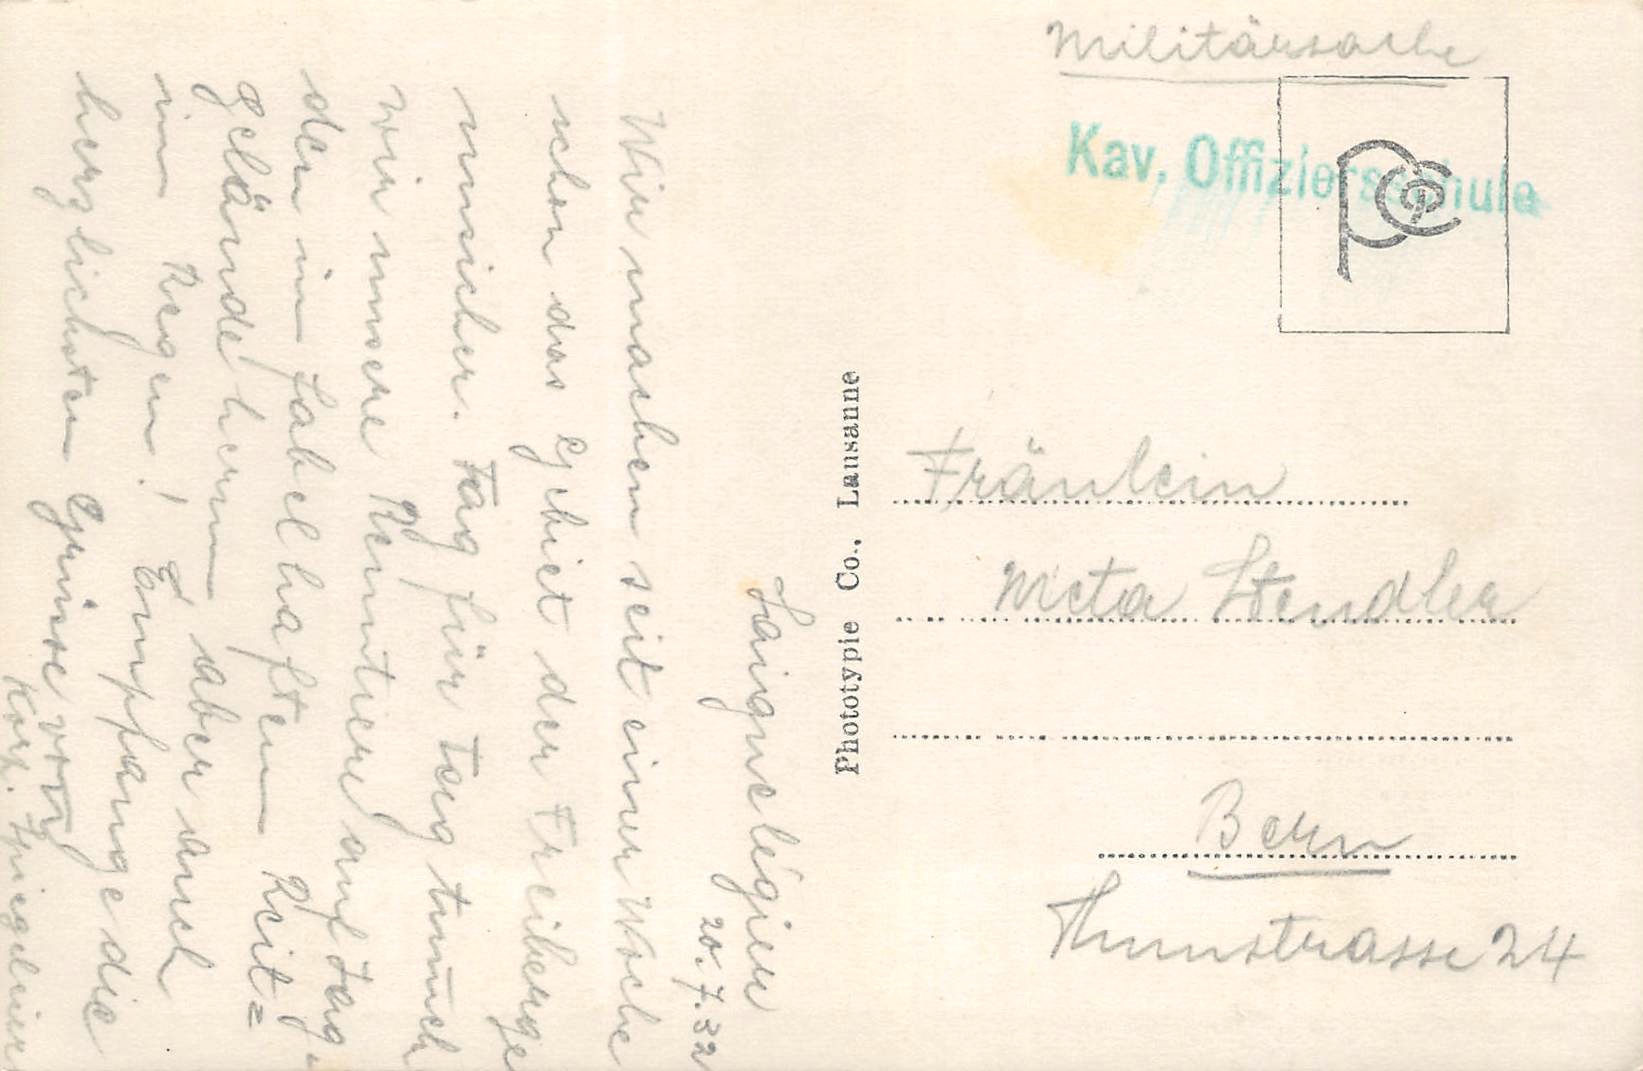 Militärsache
Kav. Offiziersschule
Fräulein
Meta Stendler
Bern
Thunstrasse 24
Phototypie Co., Lausanne
Saignelégier
20.7.32
Wir machen seit einer Woche
schon das Gebiet der Freiberge
unsicher. Tag für Tag tummeln
wir unsere
den im fabelhaften Reit=
gelände herum aber auch
im Regen! Empfange die
herzlichsten Grüsse von
Korp.